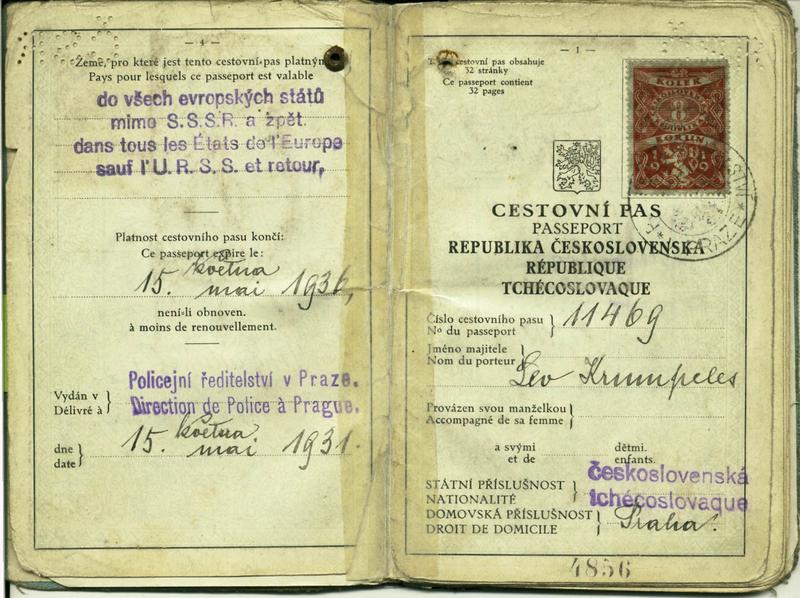 — 4 —
Země, pro které jest tento cestovní pas platným
Pays pour lesquels ce passeport est valable
do všech evropských států
mimo S.S.S.R. a zpět.
dans tous les États de l'Europe
sauf l'U.R.S.S. et retour,
Platnost cestovního pasu končí:
Ce passeport expire le:
15. května mai 1936,
není-li obnoven.
à moins de renouvellement.
Vydán v
Délivré à
Policejní ředitelství v Praze.
Direction de Police à Prague.
dne
date
15. května mai 1931.
— 1 —
cestovní pas obsahuje
32 stránky
Ce passeport contient
32 pages
KOLEK
8
KORUN
CESTOVNÍ PAS
PASSEPORT
REPUBLIKA ČESKOSLOVENSKÁ
RÉPUBLIQUE
TCHÉCOSLOVAQUE
Číslo cestovního pasu
No du passeport
11469
Jméno majitele
Nom du porteur
Leo Krumpeles
Provázen svou manželkou
Accompagné de sa femme
a svými dětmi.
et de enfants.
STÁTNÍ PŘÍSLUŠNOST
NATIONALITÉ
československá
tchécoslovaque
DOMOVSKÁ PŘÍSLUŠNOST
DROIT DE DOMICILE
Praha.
4856